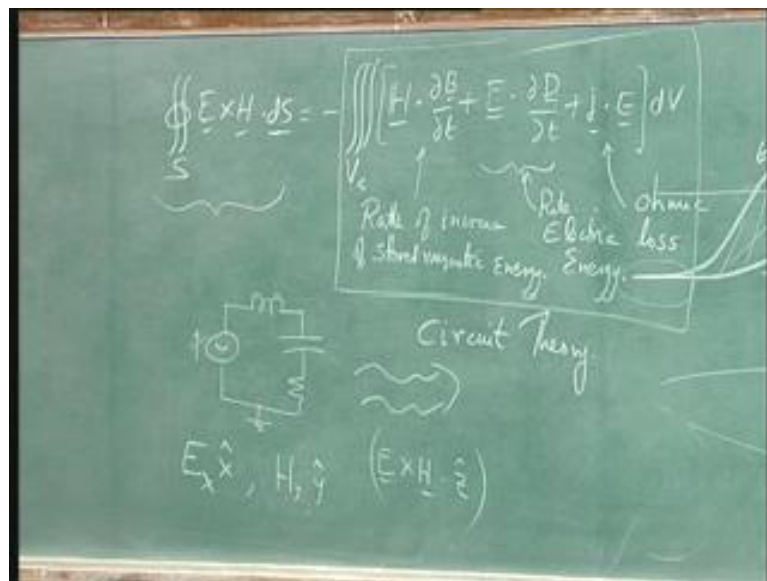 ∯ E × H · dS = - ∭ [ H · ∂B/∂t + E · ∂D/∂t + J · E ] dV
S
V
Rate of increase
of Stored magnetic Energy.
Rate
Electric
Energy.
ohmic
loss
Circuit Theory
E_x x̂ , H_y ŷ (E × H · ẑ)